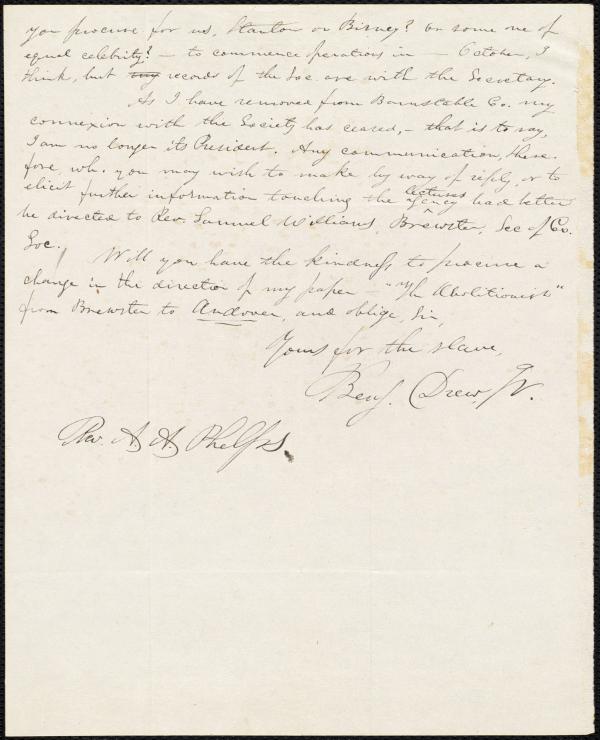 you procure for us, Stanton or Birney? or some one of
equal celebrity? — to commence operations in — October, I
think, but my records of the Soc. are with the Secretary.
As I have removed from Barnstable Co. my
connexion with the Society has ceased, — that is to say,
I am no longer its President. Any communication, there-
fore, wh. you may wish to make by way of reply, or to
elicit further information touching the lectures had better
be directed to Rev. Samuel Williams, Brewster, Sec of Co.
Soc.
Will you have the kindness to procure a
change in the direction of my paper — "The Abolitionist"
from Brewster to Andover, and oblige, Sir,
Yours for the slave,
Benj. Drew, Jr.
Rev. A. A. Phelps.